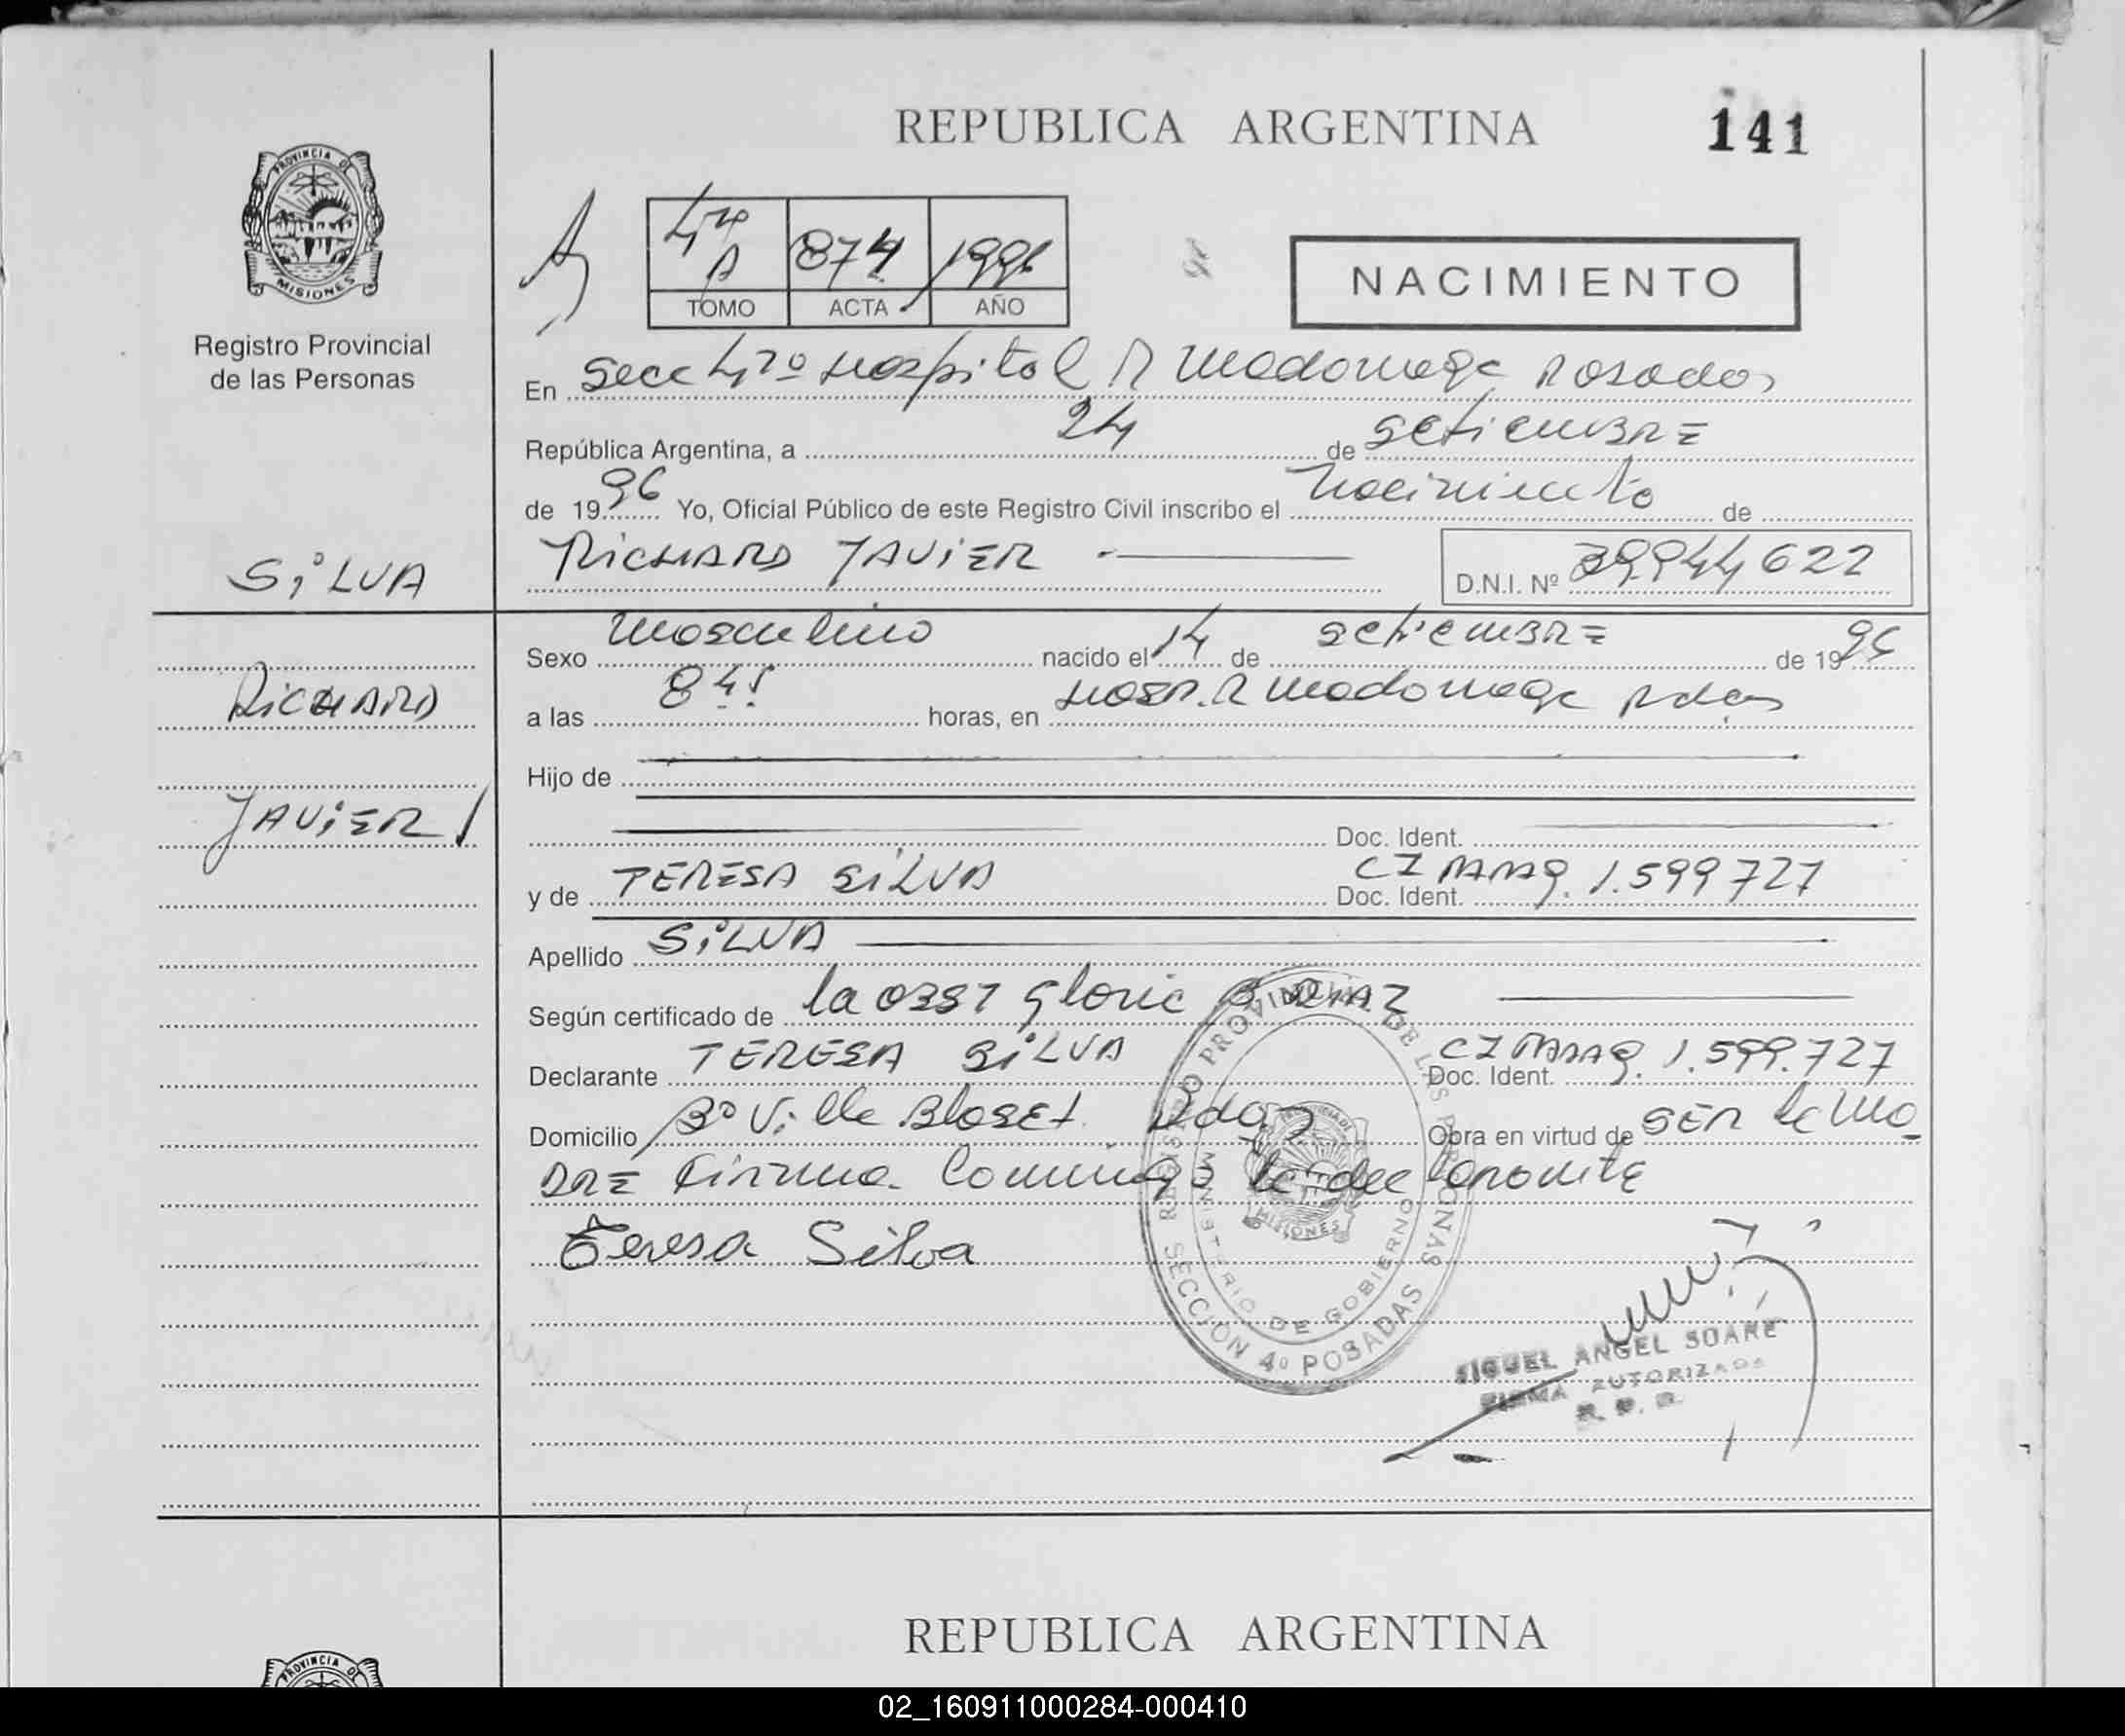 REPUBLICA ARGENTINA
141
PROVINCIA DE
MISIONES
Registro Provincial
de las Personas
4ta A 874 1996
TOMO ACTA AÑO
NACIMIENTO
En Secc 4ta Hospital R Madariaga Posadas
República Argentina, a 24 de setiembre
de 1996 Yo, Oficial Público de este Registro Civil inscribo el Nacimiento de
SiLVA
RICHARD JAVIER D.N.I. Nº 39.944622
Sexo Masculino nacido el 14 de setiembre de 1996
RICHARD
a las 8 45 horas, en Hosp. R Madariaga Pdas
Hijo de
JAVIER
Doc. Ident.
y de TERESA SILVA Doc. Ident. CI 1.599727
Apellido SILVA
Según certificado de la Obst Gloria DIAZ
Declarante TERESA SILVA Doc. Ident. CI 1.599.727
Domicilio Bº Ville Bloset Pdas Obra en virtud de SER la Ma_
DRE Firma Conmigo la declarante
Teresa Silva
REGISTRO PROVINCIAL DE LAS PERSONAS
MINISTERIO DE GOBIERNO
PROVINCIA DE
MISIONES
SECCION 4º POSADAS
MIGUEL ANGEL SOARE
FIRMA AUTORIZADA
REPUBLICA ARGENTINA
PROVINCIA DE
02_160911000284-000410